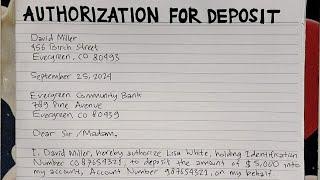 AUTHORIZATION FOR DEPOSIT
David Miller
456 Birch Street
Evergreen, CO 80493
September 25, 2024
Evergreen Community Bank
789 Pine Avenue
Evergreen, CO 80439
Dear Sir/Madam,
I, David Miller, hereby authorize Lisa White, holding Identification
Number CO87654321, to deposit the amount of $5,000 into
my account, Account Number 987654321, on my behalf